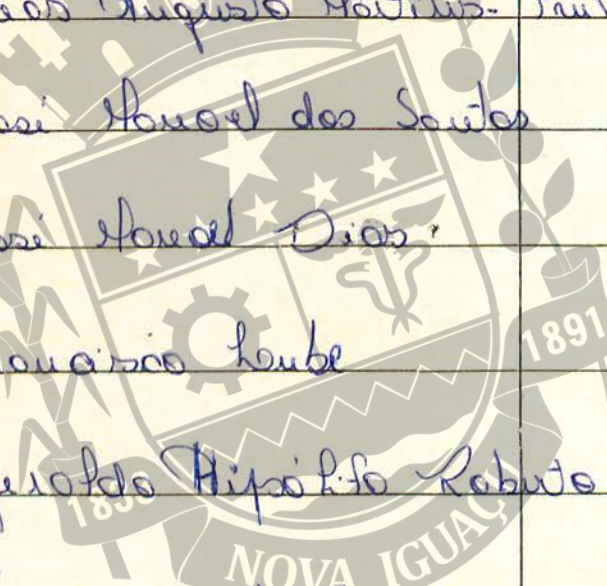 Augusto Martins-
José Manoel dos Santos
José Manoel Dias.
Francisco Leube
Geraldo Hipólito Roberto
1891
NOVA IGUAÇU